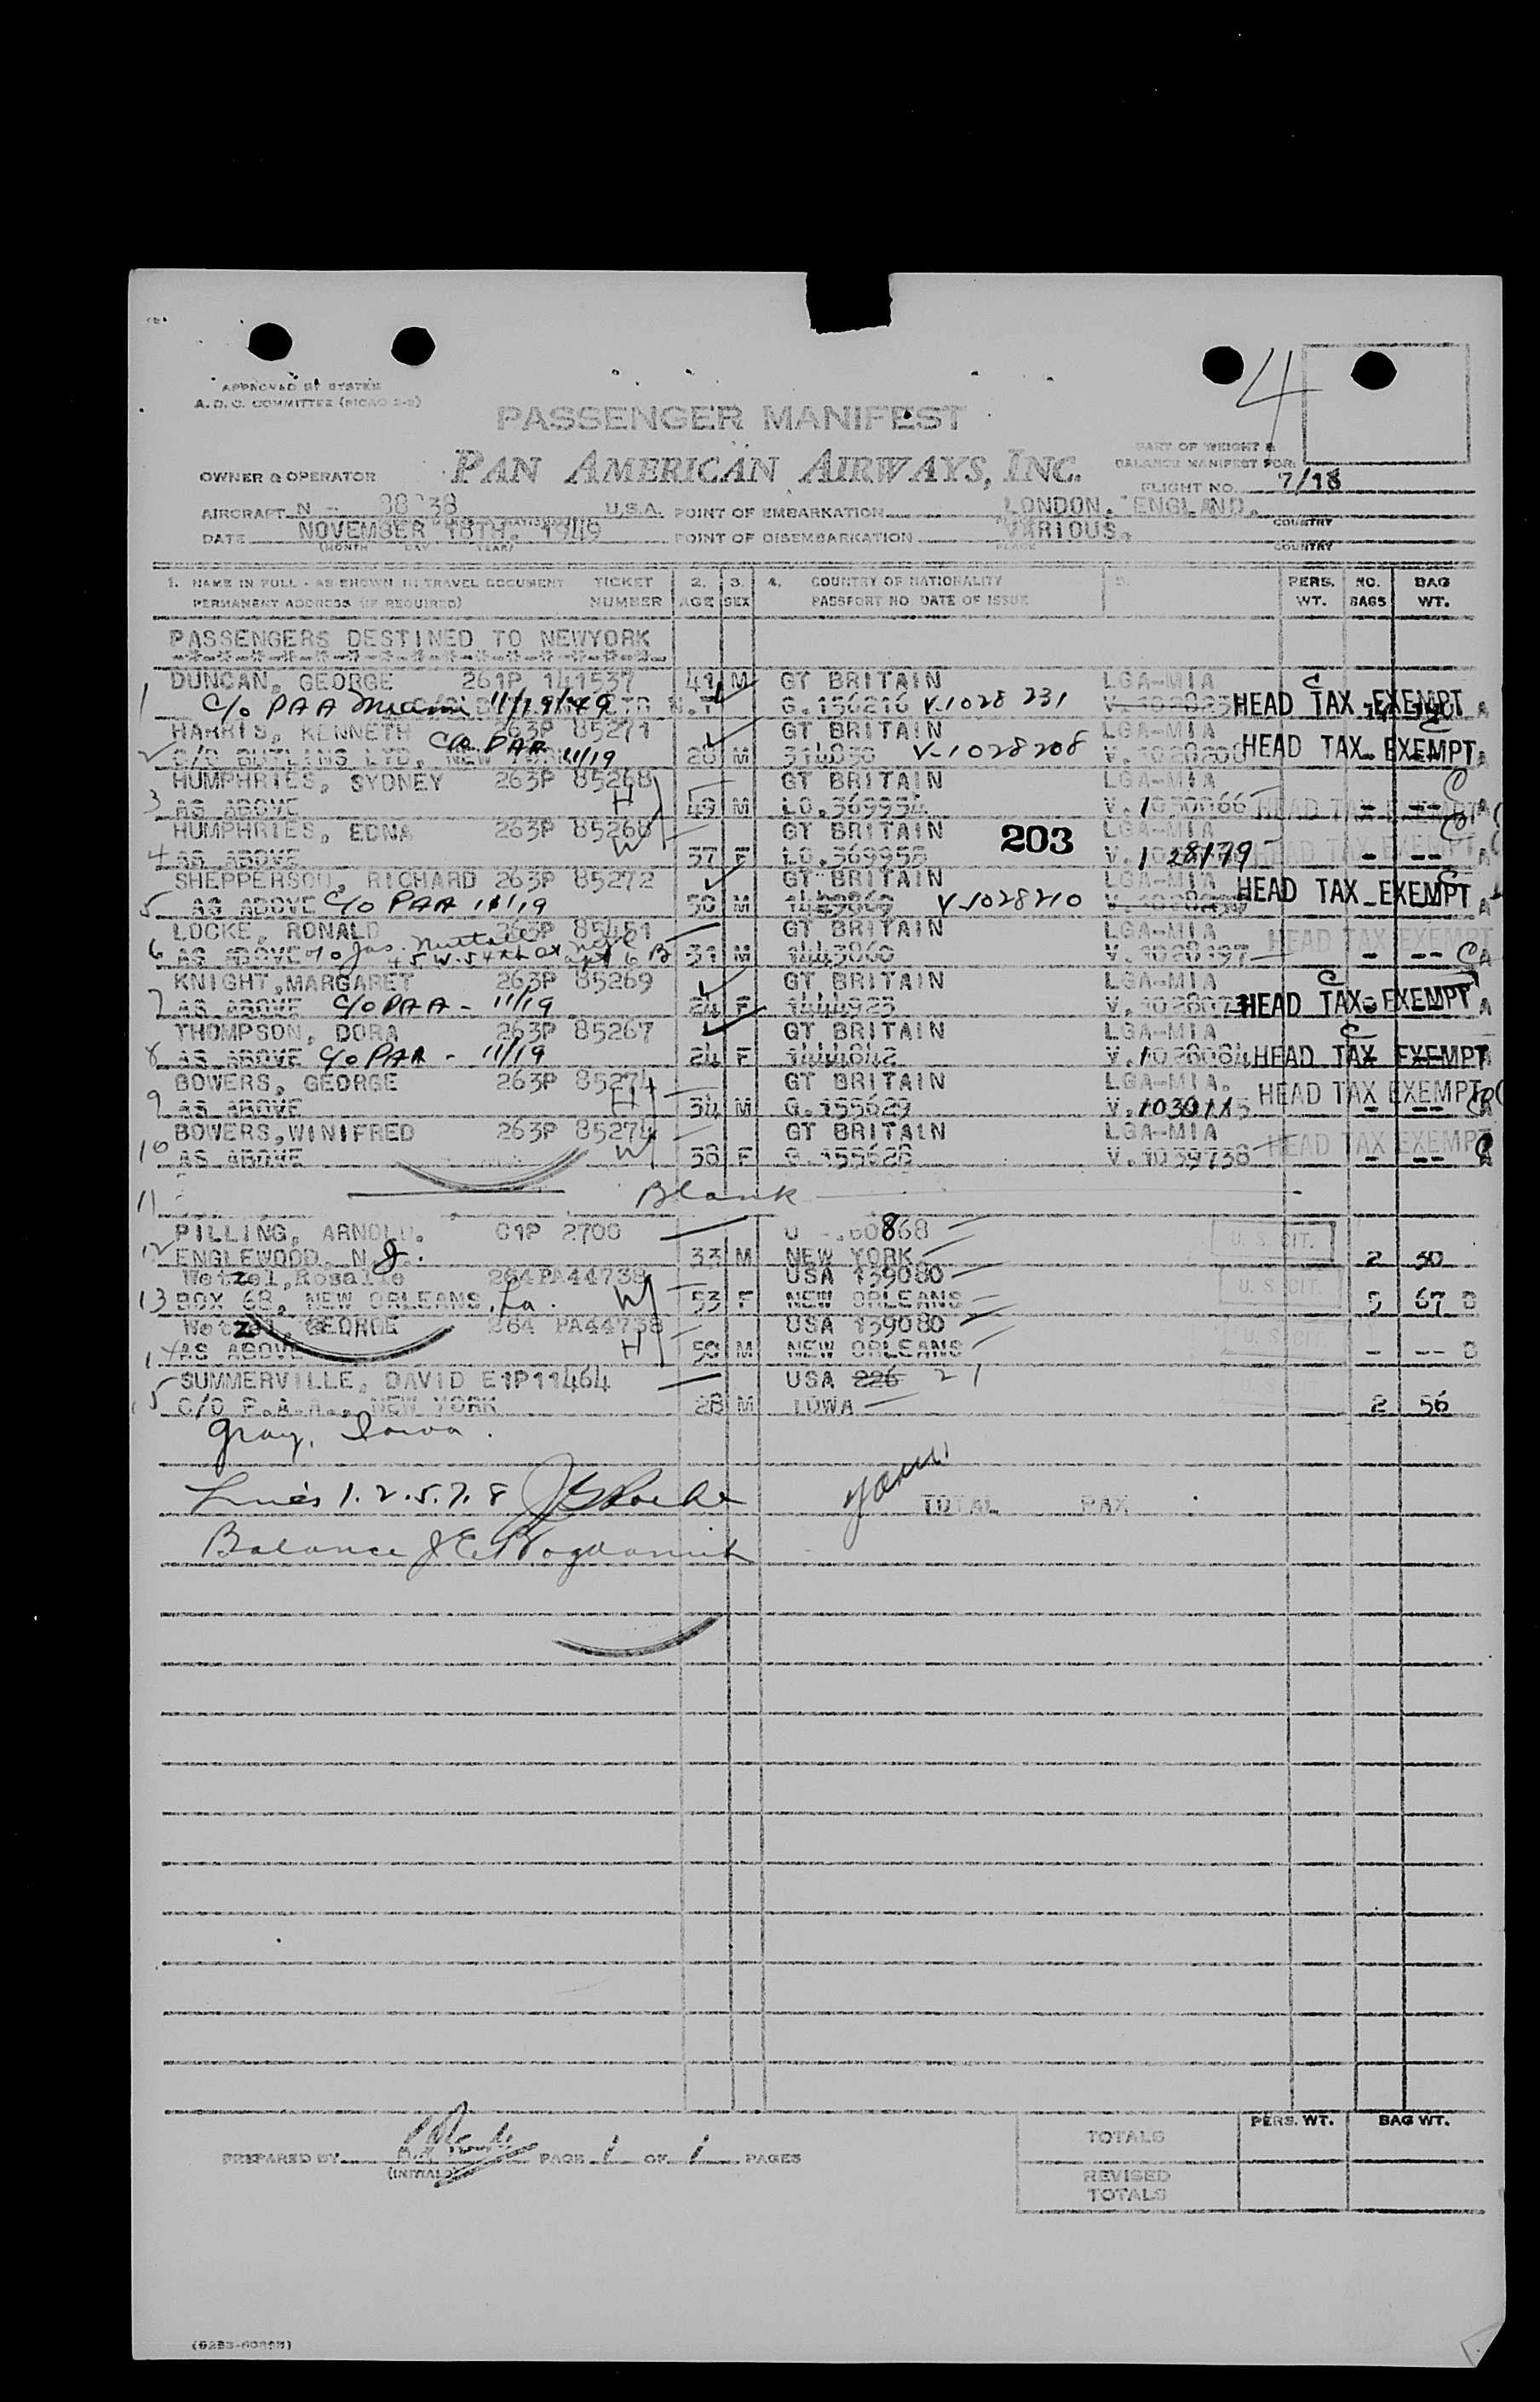 APPROVED BY SYSTEM
A. D. C. COMMITTEE
4
PASSENGER MANIFEST
PART OF WEIGHT &
BALANCE MANIFEST FOR:
OWNER & OPERATOR
PAN AMERICAN AIRWAYS, INC.
FLIGHT NO. 7/18
AIRCRAFT N - U.S.A. POINT OF EMBARKATION LONDON, ENGLAND.
COUNTRY
DATE NOVEMBER 18TH. 1949 POINT OF DISEMBARKATION VARIOUS.
(MONTH DAY YEAR) PLACE COUNTRY
1. NAME IN FULL - AS SHOWN IN TRAVEL DOCUMENT TICKET 2. 3. 4. COUNTRY OF NATIONALITY 5. PERS. NO. BAG
PERMANENT ADDRESS (IF REQUIRED) NUMBER AGE SEX PASSPORT NO DATE OF ISSUE WT. BAGS WT.
PASSENGERS DESTINED TO NEWYORK
DUNCAN, GEORGE 261P 141537 41 M GT BRITAIN LGA-MIA C
1 C/o PAA Miami 11/19/49 G.156216 V-1028 231 HEAD TAX EXEMPT A
HARRIS, KENNETH 263P 85271 GT BRITAIN LGA-MIA C
2 C/O BUTLINS LTD, NEW C/o PAA 11/19 28 M V-1028208 HEAD TAX EXEMPT A
HUMPHRIES, SYDNEY 263P 85268 GT BRITAIN LGA-MIA C
3 AS ABOVE H 49 M LO.369954 V.1030866 HEAD TAX EXEMPT
HUMPHRIES, EDNA 263P 85268 GT BRITAIN 203 LGA-MIA C
4 AS ABOVE W 37 F LO.369955 V.1028179 HEAD TAX EXEMPT A
SHEPPERSON, RICHARD 263P 85272 GT BRITAIN LGA-MIA C
5 AS ABOVE C/o PAA 11/19 50 M V-1028210 HEAD TAX EXEMPT A
LOCKE, RONALD 263P 85451 GT BRITAIN LGA-MIA
6 AS ABOVE c/o Jas. Nuttall 45 W. 54th St apt 6 B 31 M 1443860 V.1028197 HEAD TAX EXEMPT CA
KNIGHT,MARGARET 263P 85269 GT BRITAIN LGA-MIA C
7 AS ABOVE C/o PAA - 11/19 24 F 1444923 HEAD TAX EXEMPT A
THOMPSON, DORA 263P 85267 GT BRITAIN LGA-MIA C
8 AS ABOVE C/o PAA - 11/19 24 F 1444842 V.1028084 HEAD TAX EXEMPT
BOWERS, GEORGE 263P 85274 GT BRITAIN LGA-MIA.
9 AS ABOVE H 34 M G.155629 HEAD TAX EXEMPT CA
BOWERS,WINIFRED 263P 85274 GT BRITAIN LGA-MIA
10 AS ABOVE W 38 F G.155628 V.1039738 HEAD TAX EXEMPT
11 Blank
PILLING, ARNOLD. 2700
12 ENGLEWOOD, N.J. 33 M NEW YORK U. S. CIT. 2 50
Wetzel,Rosalie 264PA44738 USA 139080
13 BOX 68, NEW ORLEANS, La. W 53 F NEW ORLEANS U. S. CIT 5 67
Wetzel, GEORGE 264 PA44738 USA 139080
14 AS ABOVE H 59 M NEW ORLEANS U. S. CIT - --
SUMMERVILLE, DAVID E1P11464 USA 226 21
15 C/O P.A.A., NEW YORK 28 M IOWA 2 56
Gray, Iowa.
Lines 1.2.5.7.8
TOTAL PAX
Balance
PREPARED BY (INITIALS) PAGE 1 OF 1 PAGES
PERS. WT. BAG WT.
TOTALS
REVISED
TOTALS